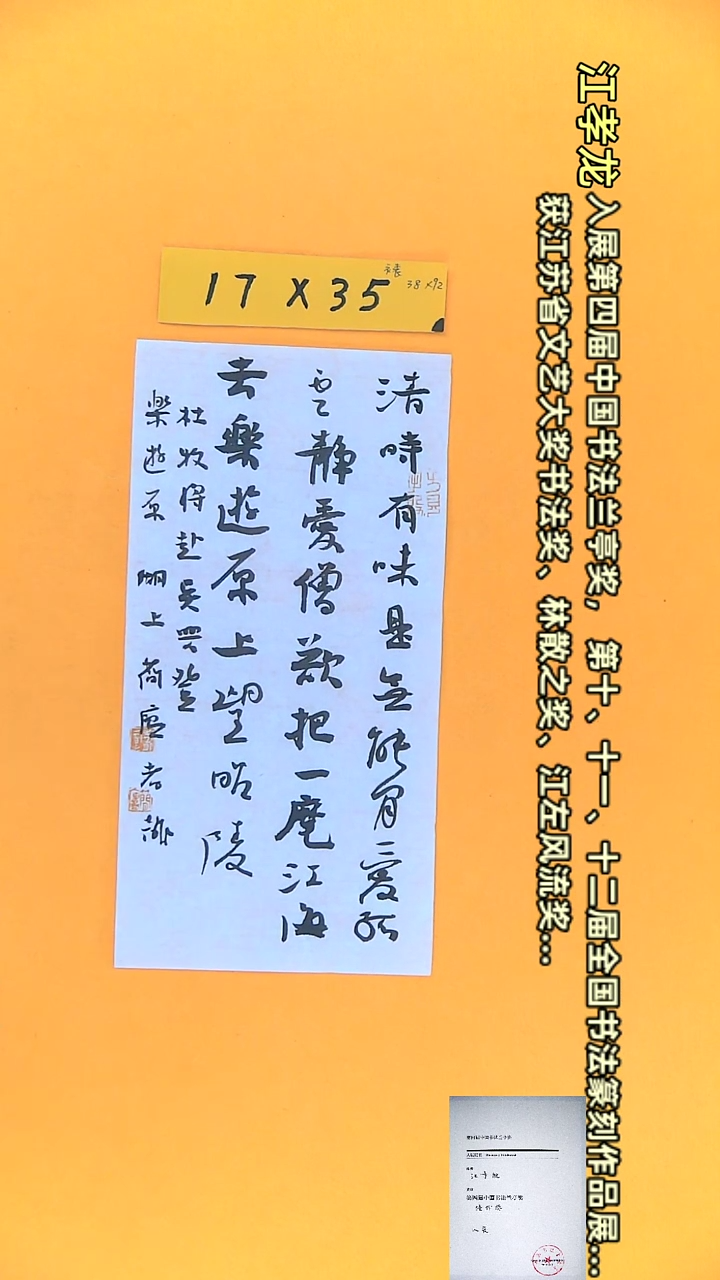 江孝龙 入展第四届中国书法兰亭奖，第十、十一、十二届全国书法篆刻作品展...
获江苏省文艺大奖书法奖、林散之奖、江左风流奖...
17 X 35
38 X 92
清時有味是無能閒愛孤
雲靜愛僧欲把一麾江海
去樂遊原上望昭陵
杜牧將赴吳興登
樂遊原 湖上 孝龍